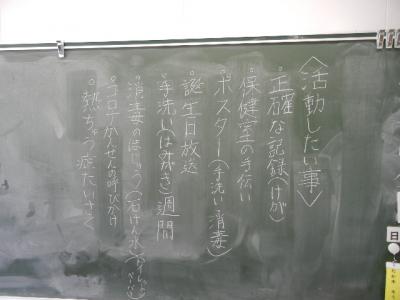 〈活動したい事〉
・正確な記録(けが)
・保健室の手伝い
・ポスター(手洗い消毒)
・誕生日放送
・手洗い(はみがき)週間
・消毒のほじゅう(石けん水)
・コロナかんせんの呼びかけ
・熱ちゅう症たいさく
日